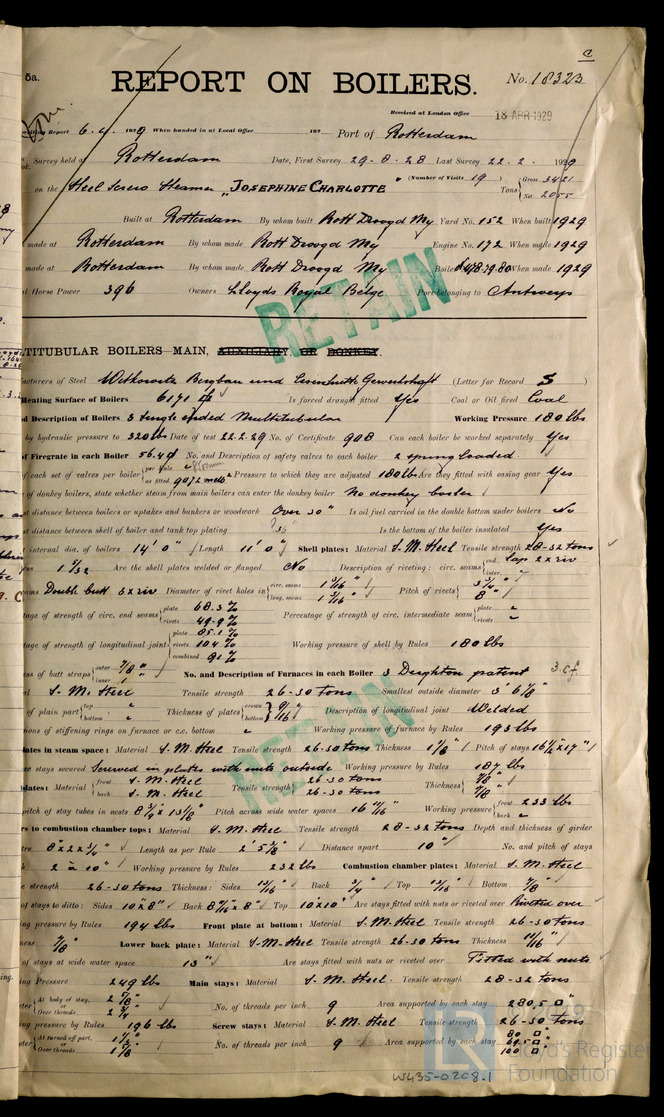 a
5a. REPORT ON BOILERS. No. 18323
Received at London Office 18 APR 1929
Report 6.4. 1929 When handed in at Local Office 192 Port of Rotterdam
Survey held at Rotterdam Date, First Survey 29.8.28 Last Survey 22.2. 1929
on the Steel Screw Steamer „JOSEPHINE CHARLOTTE" (Number of Visits 19) Tons Gross 3421 Net 2055
Built at Rotterdam By whom built Rott Droogd My Yard No. 152 When built 1929
made at Rotterdam By whom made Rott Droogd My Engine No. 172 When made 1929
made at Rotterdam By whom made Rott Droogd My Boiler When made 1929
Horse Power 396 Owners Lloyds Royal Belge Port belonging to Antwerp
RETAIN
TITUBULAR BOILERS—MAIN, AUXILIARY, OR DONKEY.
acturers of Steel Witkowitz Bergbau und Eisenhütte Gewerkschaft (Letter for Record S)
Heating Surface of Boilers 6171 Is forced draught fitted Yes Coal or Oil fired Coal
d Description of Boilers 3 Single ended Multitubular Working Pressure 180 lbs
by hydraulic pressure to 320 lbs Date of test 22.2.29 No. of Certificate 908 Can each boiler be worked separately Yes
of Firegrate in each Boiler 56.4 No. and Description of safety valves to each boiler 2 spring loaded
of each set of valves per boiler per Rule as fitted 9072 Pressure to which they are adjusted 180 lbs Are they fitted with easing gear Yes
of donkey boilers, state whether steam from main boilers can enter the donkey boiler No donkey boiler
st distance between boilers or uptakes and bunkers or woodwork Over 30" Is oil fuel carried in the double bottom under boilers No
st distance between shell of boiler and tank top plating Is the bottom of the boiler insulated Yes
internal dia. of boilers 14' 0" Length 11' 0" Shell plates: Material S.M. Steel Tensile strength 28-32 tons
1 5/32 Are the shell plates welded or flanged No Description of riveting: circ. seams end Lap 2 x riv inter.
ams Double butt 3 x riv Diameter of rivet holes in circ. seams 1 3/16" long. seams 1 3/16" Pitch of rivets 3 3/4" 8"
tage of strength of circ. end seams plate 68.3 % rivets 49.9 % Percentage of strength of circ. intermediate seam plate " rivets "
tage of strength of longitudinal joint plate 85.1 % rivets 104 % combined 91 % Working pressure of shell by Rules 180 lbs
ss of butt straps outer 7/8" inner 1" No. and Description of Furnaces in each Boiler 3 Deighton patent 3 c.f.
S.M. Steel Tensile strength 26-30 tons Smallest outside diameter 3' 6 1/8"
of plain part top " bottom " Thickness of plates crown 9/16" bottom Description of longitudinal joint Welded
nsions of stiffening rings on furnace or c.c. bottom " Working pressure of furnace by Rules 193 lbs
lates in steam space: Material S.M. Steel Tensile strength 26-30 tons Thickness 1 1/8" Pitch of stays 16 1/2" x 17"
re stays secured Screwed in plates with nuts outside Working pressure by Rules 187 lbs
RETAIN
plates: Material front S.M. Steel back S.M. Steel Tensile strength 26-30 tons 26-30 tons Thickness 7/8" 7/8"
pitch of stay tubes in nests 8 3/4" x 13 1/8" Pitch across wide water spaces 16 11/16" Working pressure front 233 lbs back "
rs to combustion chamber tops: Material S.M. Steel Tensile strength 28-32 tons Depth and thickness of girder
tre 8" x 2 x 3/4" Length as per Rule 2' 5 5/8" Distance apart 10" No. and pitch of stays
2 a 10" Working pressure by Rules 232 lbs Combustion chamber plates: Material S.M. Steel
e strength 26-30 tons Thickness: Sides 13/16" Back 3/4" Top 13/16" Bottom 7/8"
of stays to ditto: Sides 10" x 8" Back 8 11/16" x 8" Top 10" x 10" Are stays fitted with nuts or riveted over Riveted over
ng pressure by Rules 194 lbs Front plate at bottom: Material S.M. Steel Tensile strength 26-30 tons
ness 7/8" Lower back plate: Material S.M. Steel Tensile strength 26-30 tons Thickness 11/16"
of stays at wide water space 13" Are stays fitted with nuts or riveted over Fitted with nuts
ng Pressure 249 lbs Main stays: Material S.M. Steel. Tensile strength 28-32 tons
eter At body of stay, or Over threads 2 7/8" 2 3/4" No. of threads per inch 9 Area supported by each stay 280.5 □"
ng pressure by Rules 196 lbs Screw stays: Material S.M. Steel Tensile strength 26-30 tons
eter At turned off part, or Over threads No. of threads per inch 9 Area supported by each stay 80 □" 69.5 □" 100 □"
Lloyd's Register
Foundation
W435-0208.1